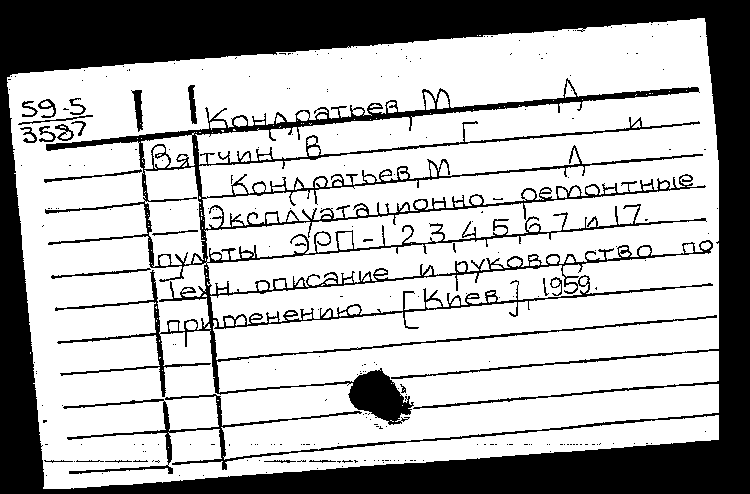 59-5
3587
Кондратьев, М Д
Вятчин, В Г и
Кондратьев, М Д
Эксплуатационно-ремонтные
пульты ЭРП-1,2,3,4,5,6,7 и 17.
Техн. описание и руководство по
применению. [Киев], 1959.